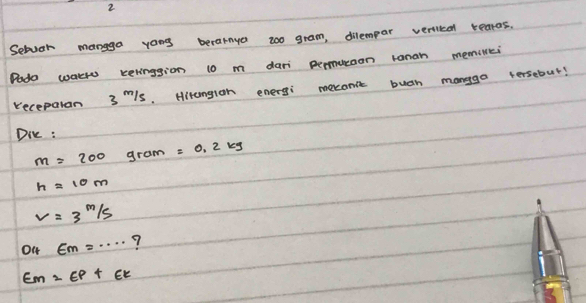 2
Sebuah mangga yang beratnya 200 gram, dilempar vertikal keatas.
Pada waktu ketinggian 10 m dari permukaan tanah memiliki
kecepatan 3 m/s. Hitunglah energi mekanik buah mangga tersebut!
Dik :
m = 200 gram = 0,2 kg
h = 10 m
v = 3 m/s
Dit Em = .... ?
Em = EP + EK